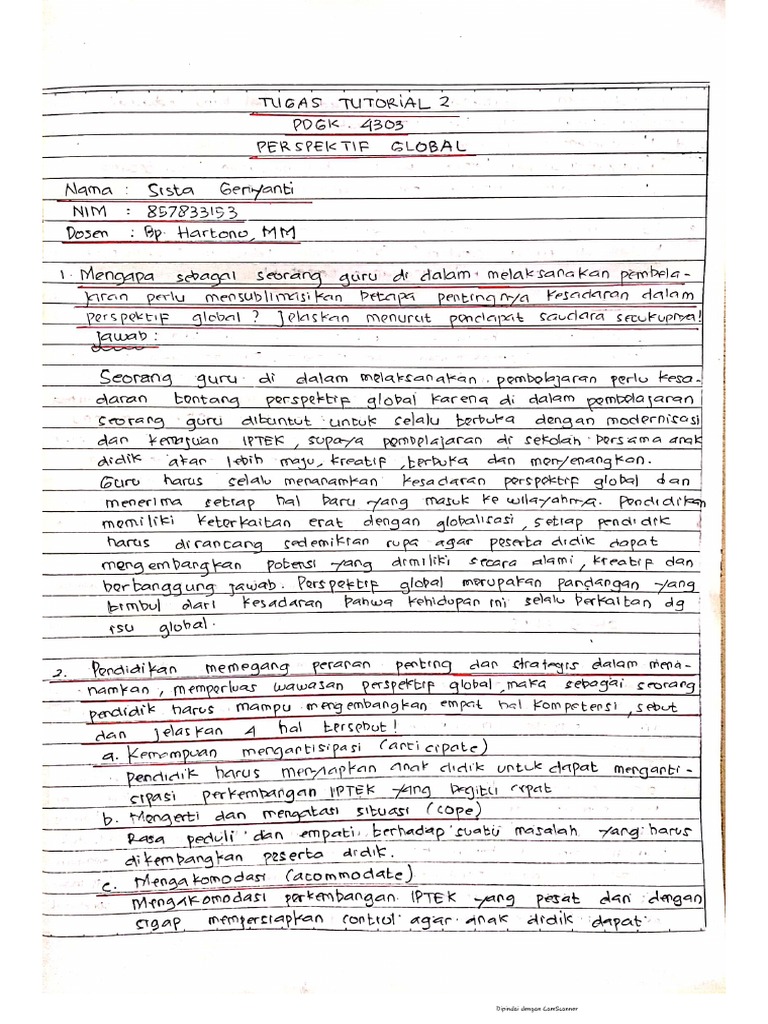 TUGAS TUTORIAL 2
PDGK 4303
PERSPEKTIF GLOBAL
Nama : Sista Geriyanti
NIM : 857833153
Dosen : Bp. Hartono, MM
1. Mengapa sebagai seorang guru di dalam melaksanakan pembela-
jaran perlu mensublimasikan betapa pentingnya kesadaran dalam
perspektif global? Jelaskan menurut pendapat saudara secukupnya!
Jawab :
Seorang guru di dalam melaksanakan pembelajaran perlu kesa-
daran tentang perspektif global karena di dalam pembelajaran
seorang guru dituntut untuk selalu terbuka dengan modernisasi
dan kemajuan IPTEK, supaya pembelajaran di sekolah bersama anak
didik akan lebih maju, kreatif, terbuka dan menyenangkan.
Guru harus selalu menanamkan kesadaran perspektif global dan
menerima setiap hal baru yang masuk ke wilayahnya. Pendidikan
memiliki keterkaitan erat dengan globalisasi, setiap pendidik
harus dirancang sedemikian rupa agar peserta didik dapat
mengembangkan potensi yang dimiliki secara alami, kreatif dan
bertanggung jawab. Perspektif global merupakan pandangan yang
timbul dari kesadaran bahwa kehidupan ini selalu berkaitan dg
isu global.
2. Pendidikan memegang peranan penting dan strategis dalam mena-
namkan, memperluas wawasan perspektif global, maka sebagai seorang
pendidik harus mampu mengembangkan empat hal kompetensi, sebut
dan jelaskan 4 hal tersebut!
a. Kemampuan mengantisipasi (anticipate)
pendidik harus menyiapkan anak didik untuk dapat menganti-
sipasi perkembangan IPTEK yang begitu cepat
b. Mengerti dan mengatasi situasi (cope)
Rasa peduli dan empati terhadap suatu masalah yang harus
dikembangkan peserta didik.
c. Mengakomodasi (acommodate)
Mengakomodasi perkembangan IPTEK yang pesat dan dengan
sigap mempersiapkan control agar anak didik dapat
Dipindai dengan CamScanner